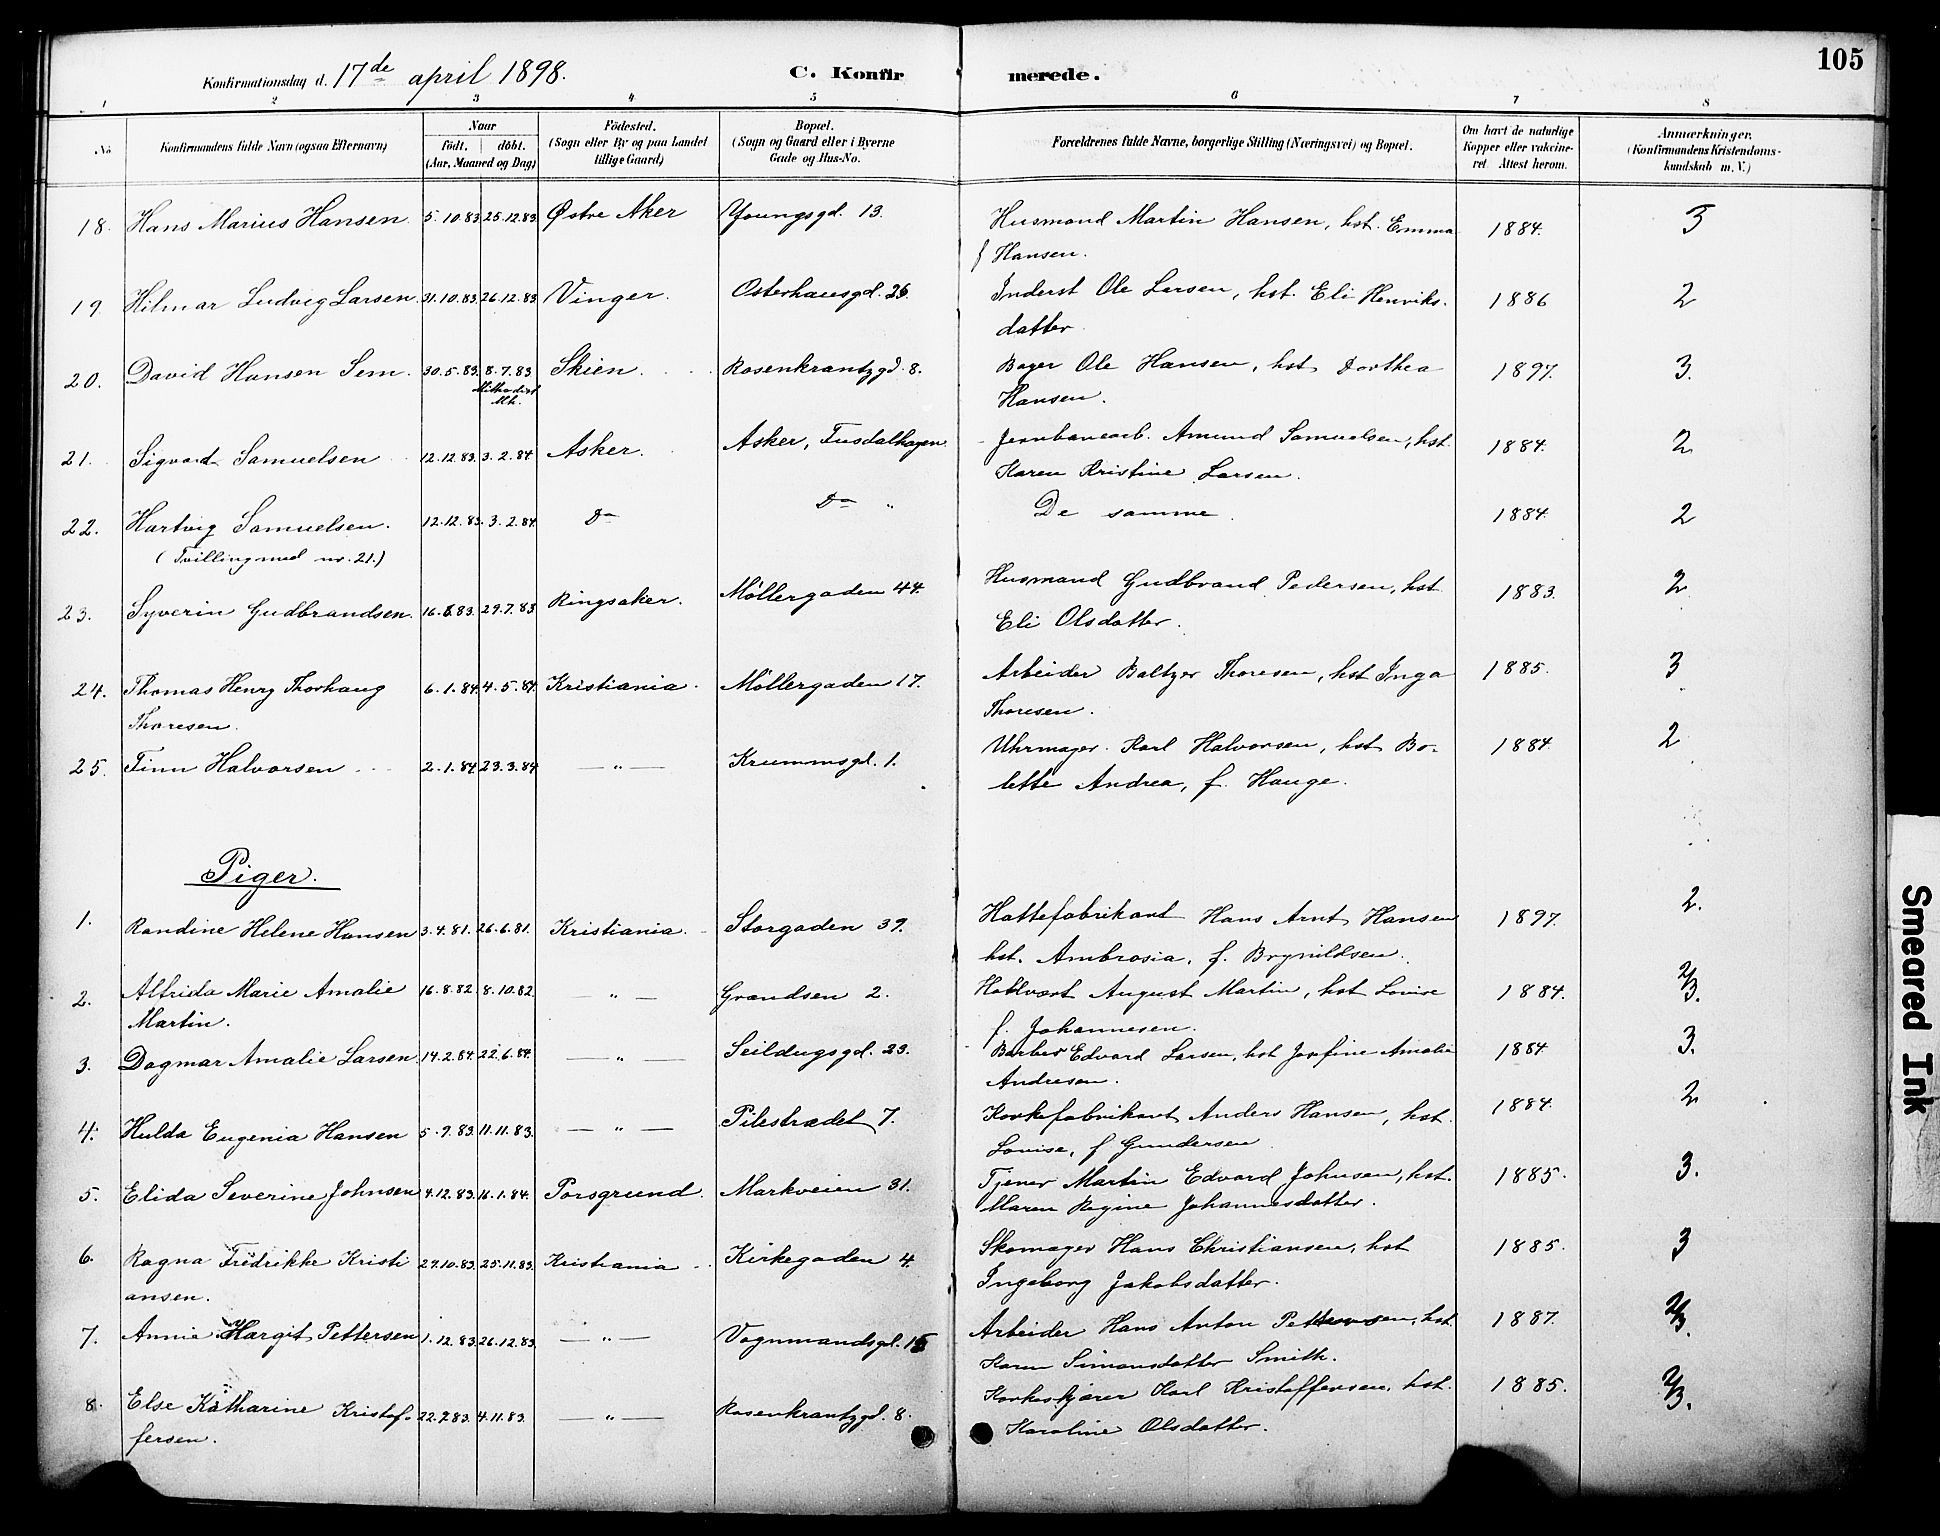 105
Konfirmationsdag d. 17de april 1898. C. Konfirmerede.
1 2 3 4 5 6 7 8
No. Konfirmandens fulde Navn (ogsaa Efternavn) Naar født. døbt. (Aar, Maaned og Dag) Fødested. (Sogn eller By og paa Landet tillige Gaard) Bopæl. (Sogn og Gaard eller i Byerne Gade og Hus-No. Forældrenes fulde Navne, borgerlige Stilling (Næringsvei) og Bopæl. Om havt de naturlige Kopper eller vakcineret. Attest herom. Anmærkninger. (Konfirmandens Kristendomskundskab m. V.)
18. Hans Marius Hansen 5.10.83 25.12.83 Østre Aker Youngsgd. 13. Husmand Martin Hansen, hst. Emma 1884. 3
f Hansen.
19. Hilmar Ludvig Larsen 31.10.83 26.12.83 Vinger. Osterhausgd. 26. Inderst Ole Larsen, hst. Eli Henriks- 1886 2
datter
20. David Hansen Sem. 30.5.83. 8.7.83 Skien. Rosenkrantzgd. 8. Bager Ole Hansen, hst Dorthea 1897. 3.
Methodist Mk. Hansen.
21. Sigvard Samuelsen 12.12.83. 3.2.84 Asker. Asker, Tusdalhagen Jernbanearb. Amund Samuelsen, hst. 1884. 2
Karen Kristine Larsen.
22. Hartvig Samuelsen. 12.12.83. 3.2.84 Do Do " De samme. 1884. 2
(Tvilling med nr. 21.)
23. Syverin Gudbrandsen. 16.6.83. 29.7.83 Ringsaker. Møllergaden 44. Husmand Gudbrand Pedersen, hst 1883. 2
Eli Olsdatter.
24. Thomas Henry Thorhaug 6.1.84. 4.5.84. Kristiania. Møllergaden 17. Arbeider Baltzer Thoresen, hst Inga 1885. 3
Thoresen. Thoresen.
25. Finn Halvorsen 2.1.84. 23.3.84 — " — Krummsgd. 1. Uhrmager Karl Halvorsen, hst Bo- 1884. 2
lette Andrea, f. Hauge.
Piger.
1. Randine Helene Hansen 3.4.81. 26.6.81. Kristiania. Storgaden 39. Hattefabrikant Hans Arnt Hansen 1897. 2.
hst. Ambrosia, f. Brynildsen.
2. Alfrida Marie Amalie 16.8.82 8.10.82. — " — Grændsen 2. August Martin, hst Lovise 1884. 2/3.
Martin. f. Johannesen.
3. Dagmar Amalie Larsen 14.2.84. 22.6.84. — " — Seildugsgd. 23. Barber Edvard Larsen, hst Josefine Amalie 1884. 3.
Andresen.
4. Hulda Eugenia Hansen 5.9.83. 11.11.83. — " — Pilestrædet 7. Korkefabrikant Anders Hansen, hst. 1884. 2
Lovise, f Gundersen
5. Elida Severine Johnsen 4.12.83. 16.1.84. Porsgrund. Markveien 31. Tjener Martin Edvard Johnsen, hst. 1885. 3.
Maren Regine Johannesdatter.
6. Ragna Fredrikke Kristi 29.10.83. 25.11.83. Kristiania Kirkegaden 4. Skomager Hans Christiansen, hst 1885. 3
ansen. Ingeborg Jakobsdatter.
7. Annie Margit Pettersen 1.12.83 26.12.83. — " — Vognmandsgd. 15 Arbeider Hans Anton Pettersen, hst. 1887. 2/3.
Karen Simonsdatter Smith.
8. Else Katharine Kristof- 22.7.83. 4.11.83. — " — Rosenkrantzgd. 8. Korkeskjærer Karl Kristoffersen, hst. 1885. 2/3.
fersen. Karoline Olsdatter.
Smeared Ink